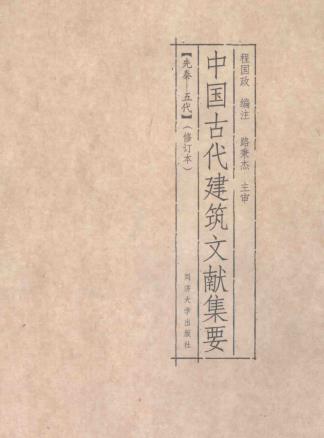 程国政 编注 路秉杰 主审
中国古代建筑文献集要
【先秦—五代】（修订本）
同济大学出版社